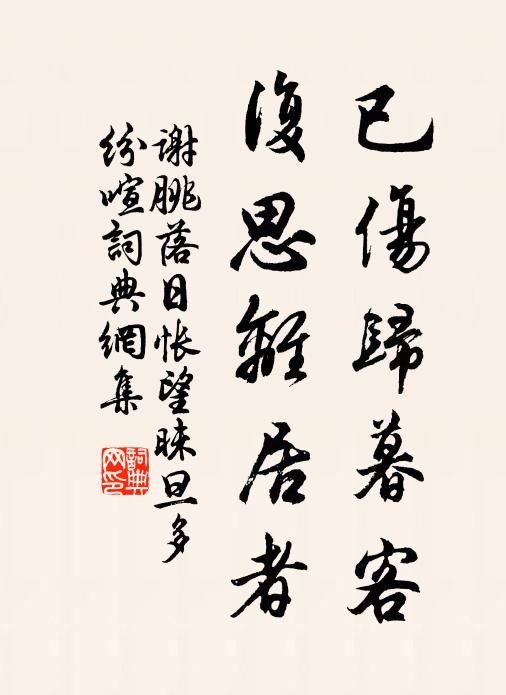 已傷歸暮客
復思離居者
謝朓落日悵望昧旦多
紛喧詞典網集
詞典
网印